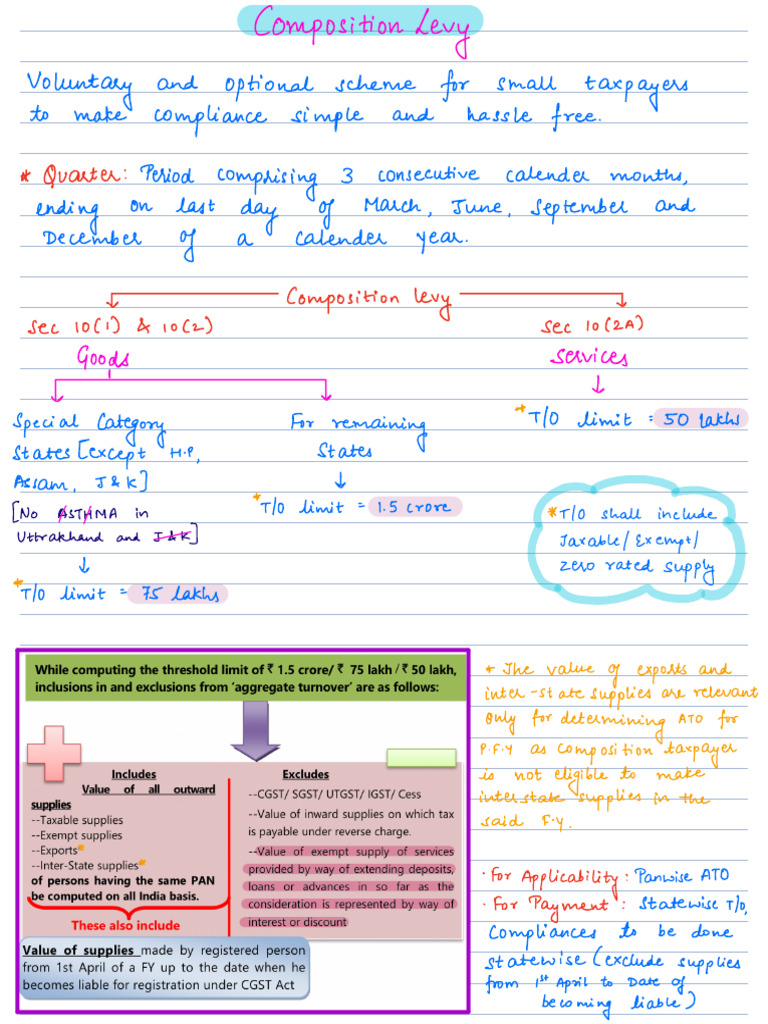 Composition Levy
Voluntary and optional scheme for small taxpayers
to make compliance simple and hassle free.
* Quarter: Period comprising 3 consecutive calender months,
ending on last day of March, June, September and
December of a calender year.
Composition levy
Sec 10(1) & 10(2)
Sec 10(2A)
Goods
Services
Special Category
States [except H.P,
Assam, J&K]
[No ASTHMA in
Uttrakhand and J&K]
*T/O limit = 75 lakhs
For remaining
States
*T/O limit = 1.5 crore
*T/O limit = 50 lakhs
*T/O shall include
Taxable/Exempt/
zero rated supply
While computing the threshold limit of ₹ 1.5 crore/ ₹ 75 lakh / ₹ 50 lakh,
inclusions in and exclusions from 'aggregate turnover' are as follows:
Includes
Value of all outward
supplies
--Taxable supplies
--Exempt supplies
--Exports*
--Inter-State supplies*
of persons having the same PAN
be computed on all India basis.
These also include
Value of supplies made by registered person
from 1st April of a FY up to the date when he
becomes liable for registration under CGST Act
Excludes
--CGST/ SGST/ UTGST/ IGST/ Cess
--Value of inward supplies on which tax
is payable under reverse charge.
--Value of exempt supply of services
provided by way of extending deposits,
loans or advances in so far as the
consideration is represented by way of
interest or discount
* The value of exports and
inter-state supplies are relevant
only for determining ATO for
P.F.Y as composition taxpayer
is not eligible to make
interstate supplies in the
said F.Y.
• For Applicability: Panwise ATO
• For Payment: Statewise T/O,
Compliances to be done
statewise (exclude supplies
from 1st April to Date of
becoming liable)